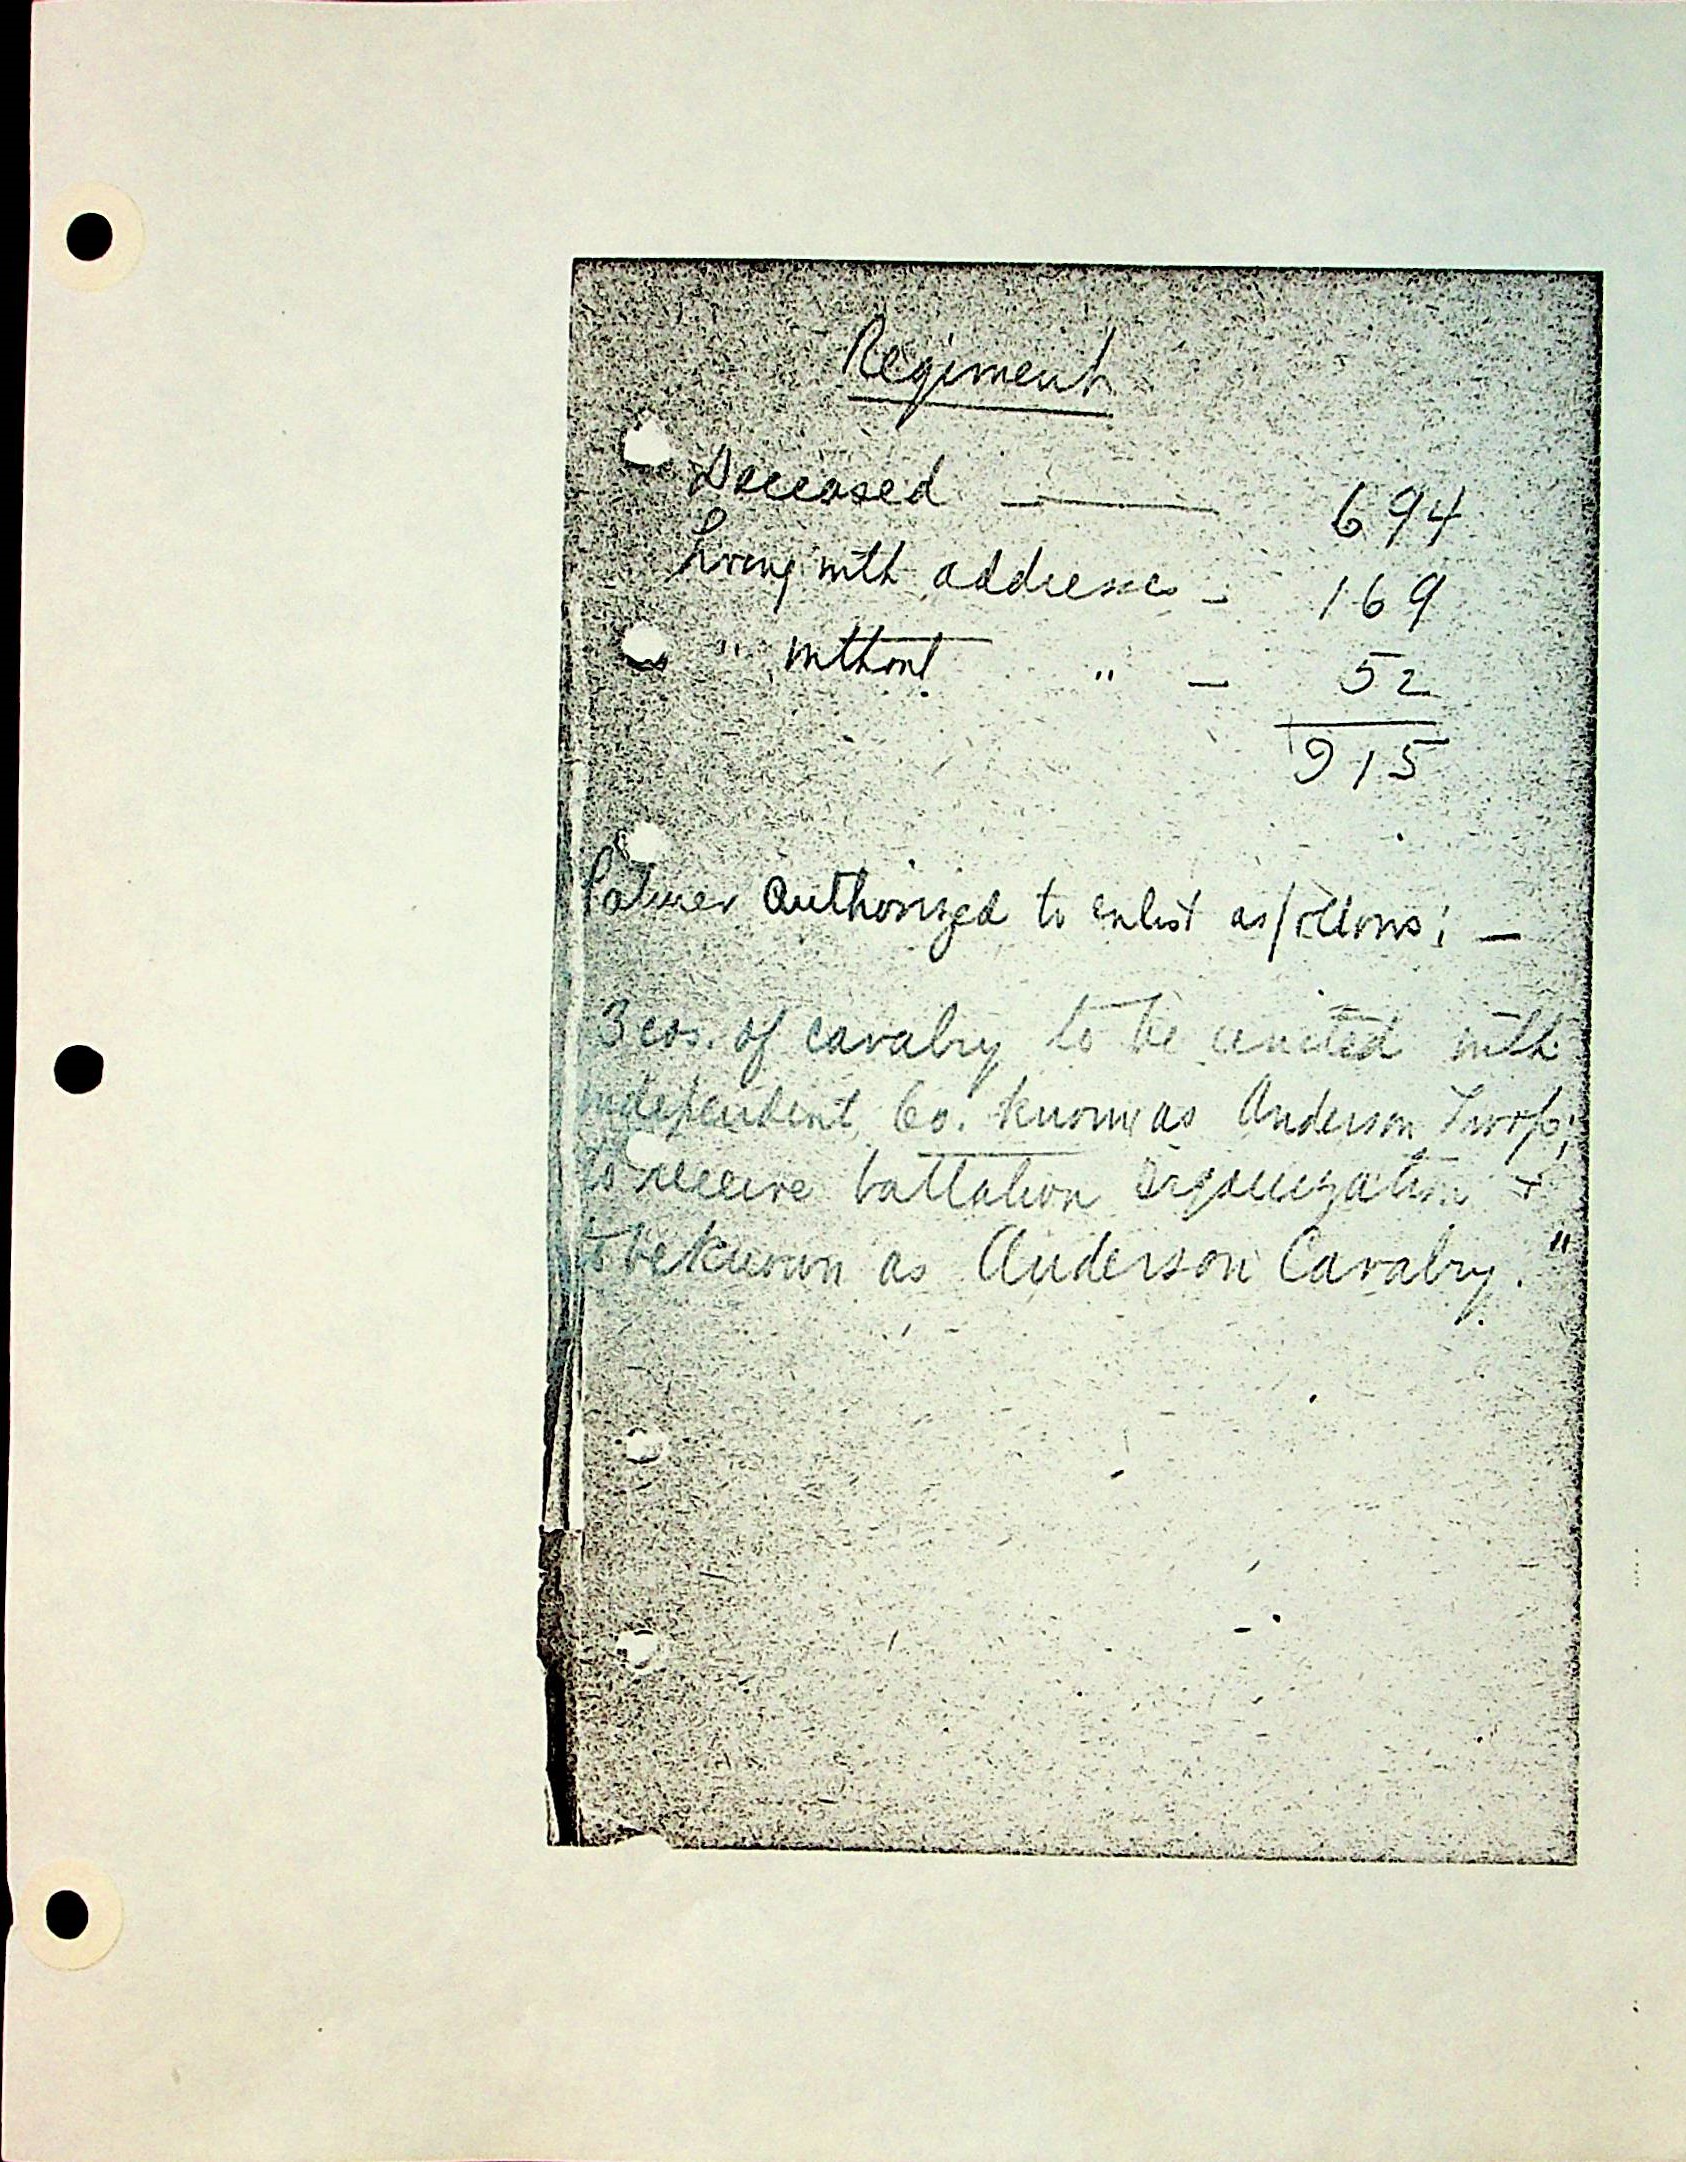 Regiment
Deceased — 694
Living with addresses - 169
" without " - 52
915
Palmer authorized to enlist as follows; —
3 cos. of cavalry to be united with
independent Co. known as Anderson Troop;
to receive battalion organization +
to be known as Anderson Cavalry."